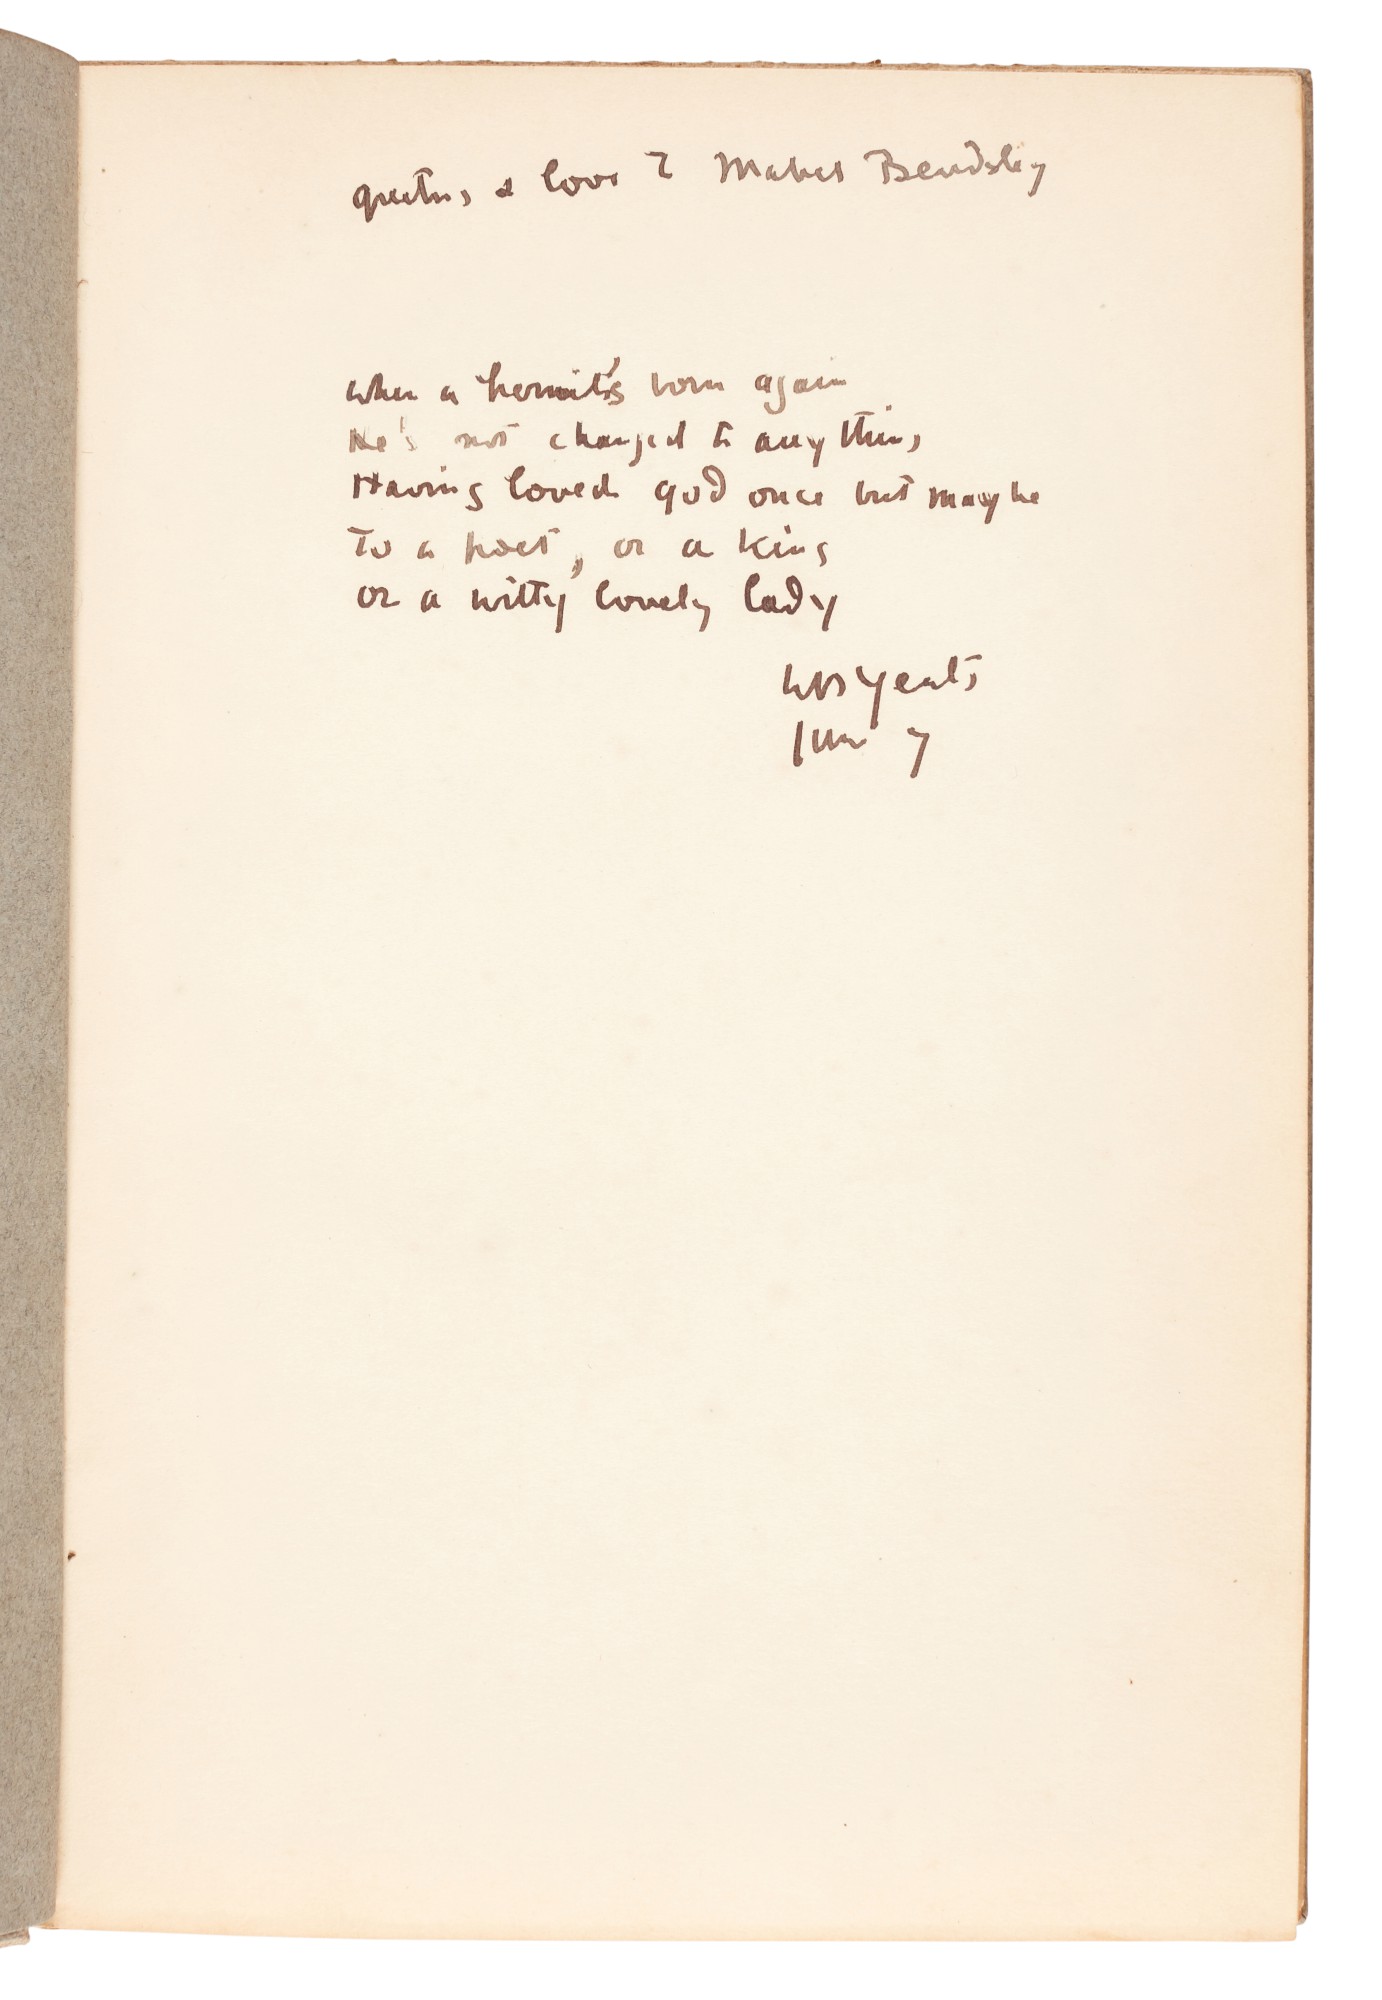 greetings & love to Mabel Beardsley
when a hermit's born again
He's not changed to any thing
Having loved god once but maybe
To a poet, or a king
or a witty lovely lady
WB Yeats
June 7